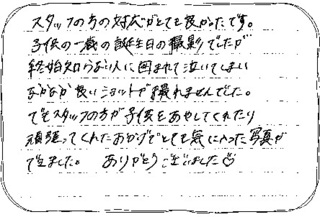 スタッフの方の対応がとても良かったです。
子供の一歳の誕生日の撮影でしたが
終始知らない人に囲まれて泣いてしまい
なかなか良いショットが撮れませんでした。
でもスタッフの方が子供をあやしてくれたり
頑張ってくれたおかげでとても気に入った写真が
できました。 ありがとうございました☺